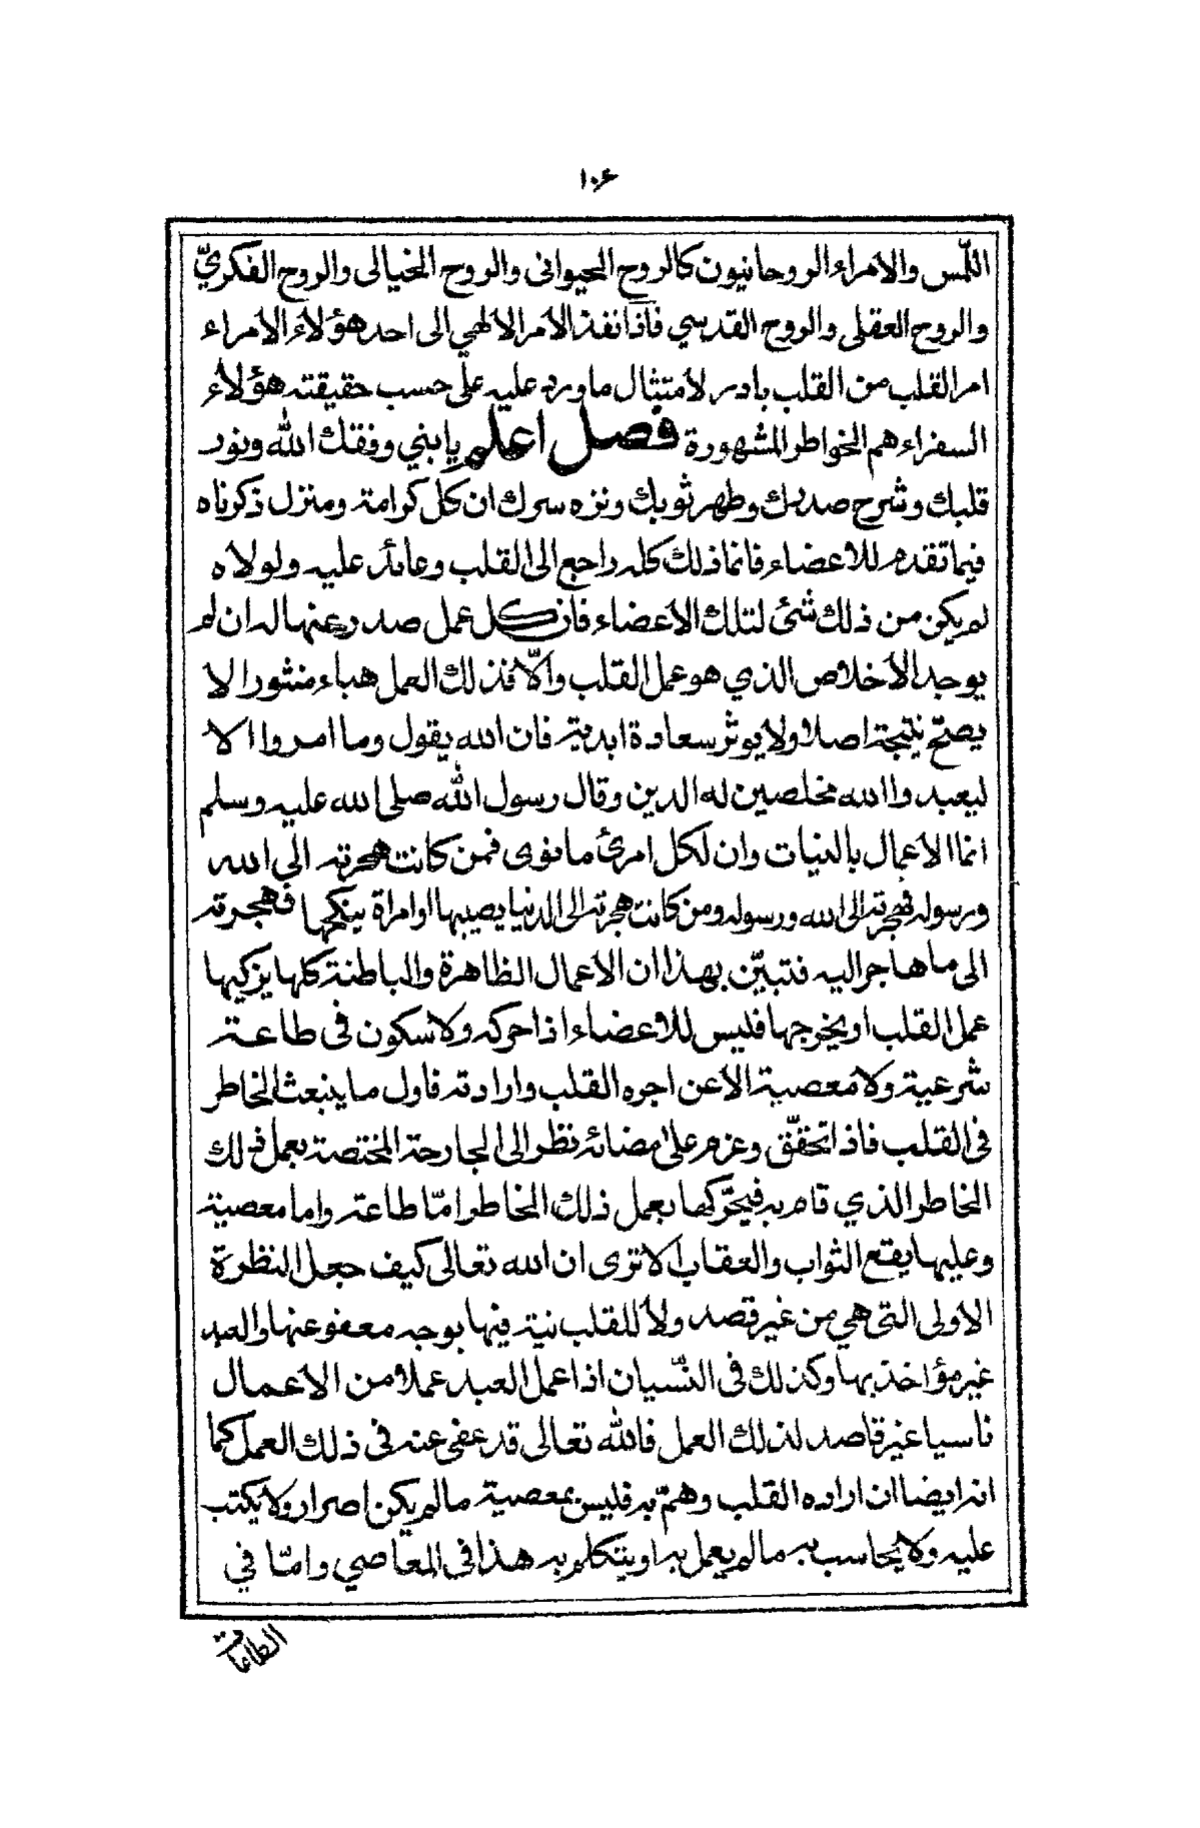 ١٠٦
اللّمس والامراء الروحانيون كالروح الحيوانى والروح الخيالى والروح الفكريّ
والروح العقلى والروح القدسي فاذا نفذ الامر الالهي الى احد هؤلاء الامراء
امر القلب من القلب بادر لامتثال ماورد عليه على حسب حقيقته هؤلاء
السفراء هم الخواطر المشهورة فصل اعلم يا بني وفقك الله ونور
قلبك وشرح صدرك وطهر ثوبك ونزه سرك ان كل كرامة ومنزل ذكرناه
فيما تقدم للاعضاء فانما ذلك كله راجع الى القلب وعائد عليه ولولاه
لم يكن من ذلك شئ لتلك الاعضاء فان كل عمل صدر عنها له ان لم
يوجد الاخلاص الذي هو عمل القلب والّا فذلك العمل هباء منثورا لا
يصحّ نتيجة اصلا ولا يوثر سعادة ابدية فان الله يقول وما امروا الا
ليعبدوا الله مخلصين له الدين وقال رسول الله صلى الله عليه وسلم
انما الاعمال بالنيات وان لكل امرئ ما نوى فمن كانت هجرته الى الله
ورسوله فهجرته الى الله ورسوله ومن كانت هجرته الى الدنيا يصيبها او امراة ينكحها فهجرته
الى ما هاجر اليه فتبيّن بهذا ان الاعمال الظاهرة والباطنة كلها يزكيها
عمل القلب او يخرجها فليس للاعضاء اذا حركه ولا سكون فى طاعة
شرعية ولا معصية الا عن اجوه القلب وارادته فاول ما ينبعث الخاطر
فى القلب فاذا تحقّق وعزم على امضائه نظر الى الجارحة المختصة بعمل ذلك
الخاطر الذي قام به فيحرّكها بعمل ذلك الخاطر امّا طاعة واما معصية
وعليها يقع الثواب والعقاب الا ترى ان الله تعالى كيف جعل النظرة
الاولى التى هي من غير قصد ولا للقلب نية فيها بوجه معفو عنها والعبد
غير مؤاخذ بها وكذلك فى النّسيان اذا عمل العبد عملا من الاعمال
ناسيا غير قاصد لذلك العمل فالله تعالى قد عفى عنه فى ذلك العمل كما
انه ايضا ان اراده القلب وهمّ به فليس بمعصية ما لم يكن اصرار ولا يكتب
عليه ولا يحاسب به ما لم يعمل به او يتكلم به هذا فى المعاصي وامّا في
الطاعات